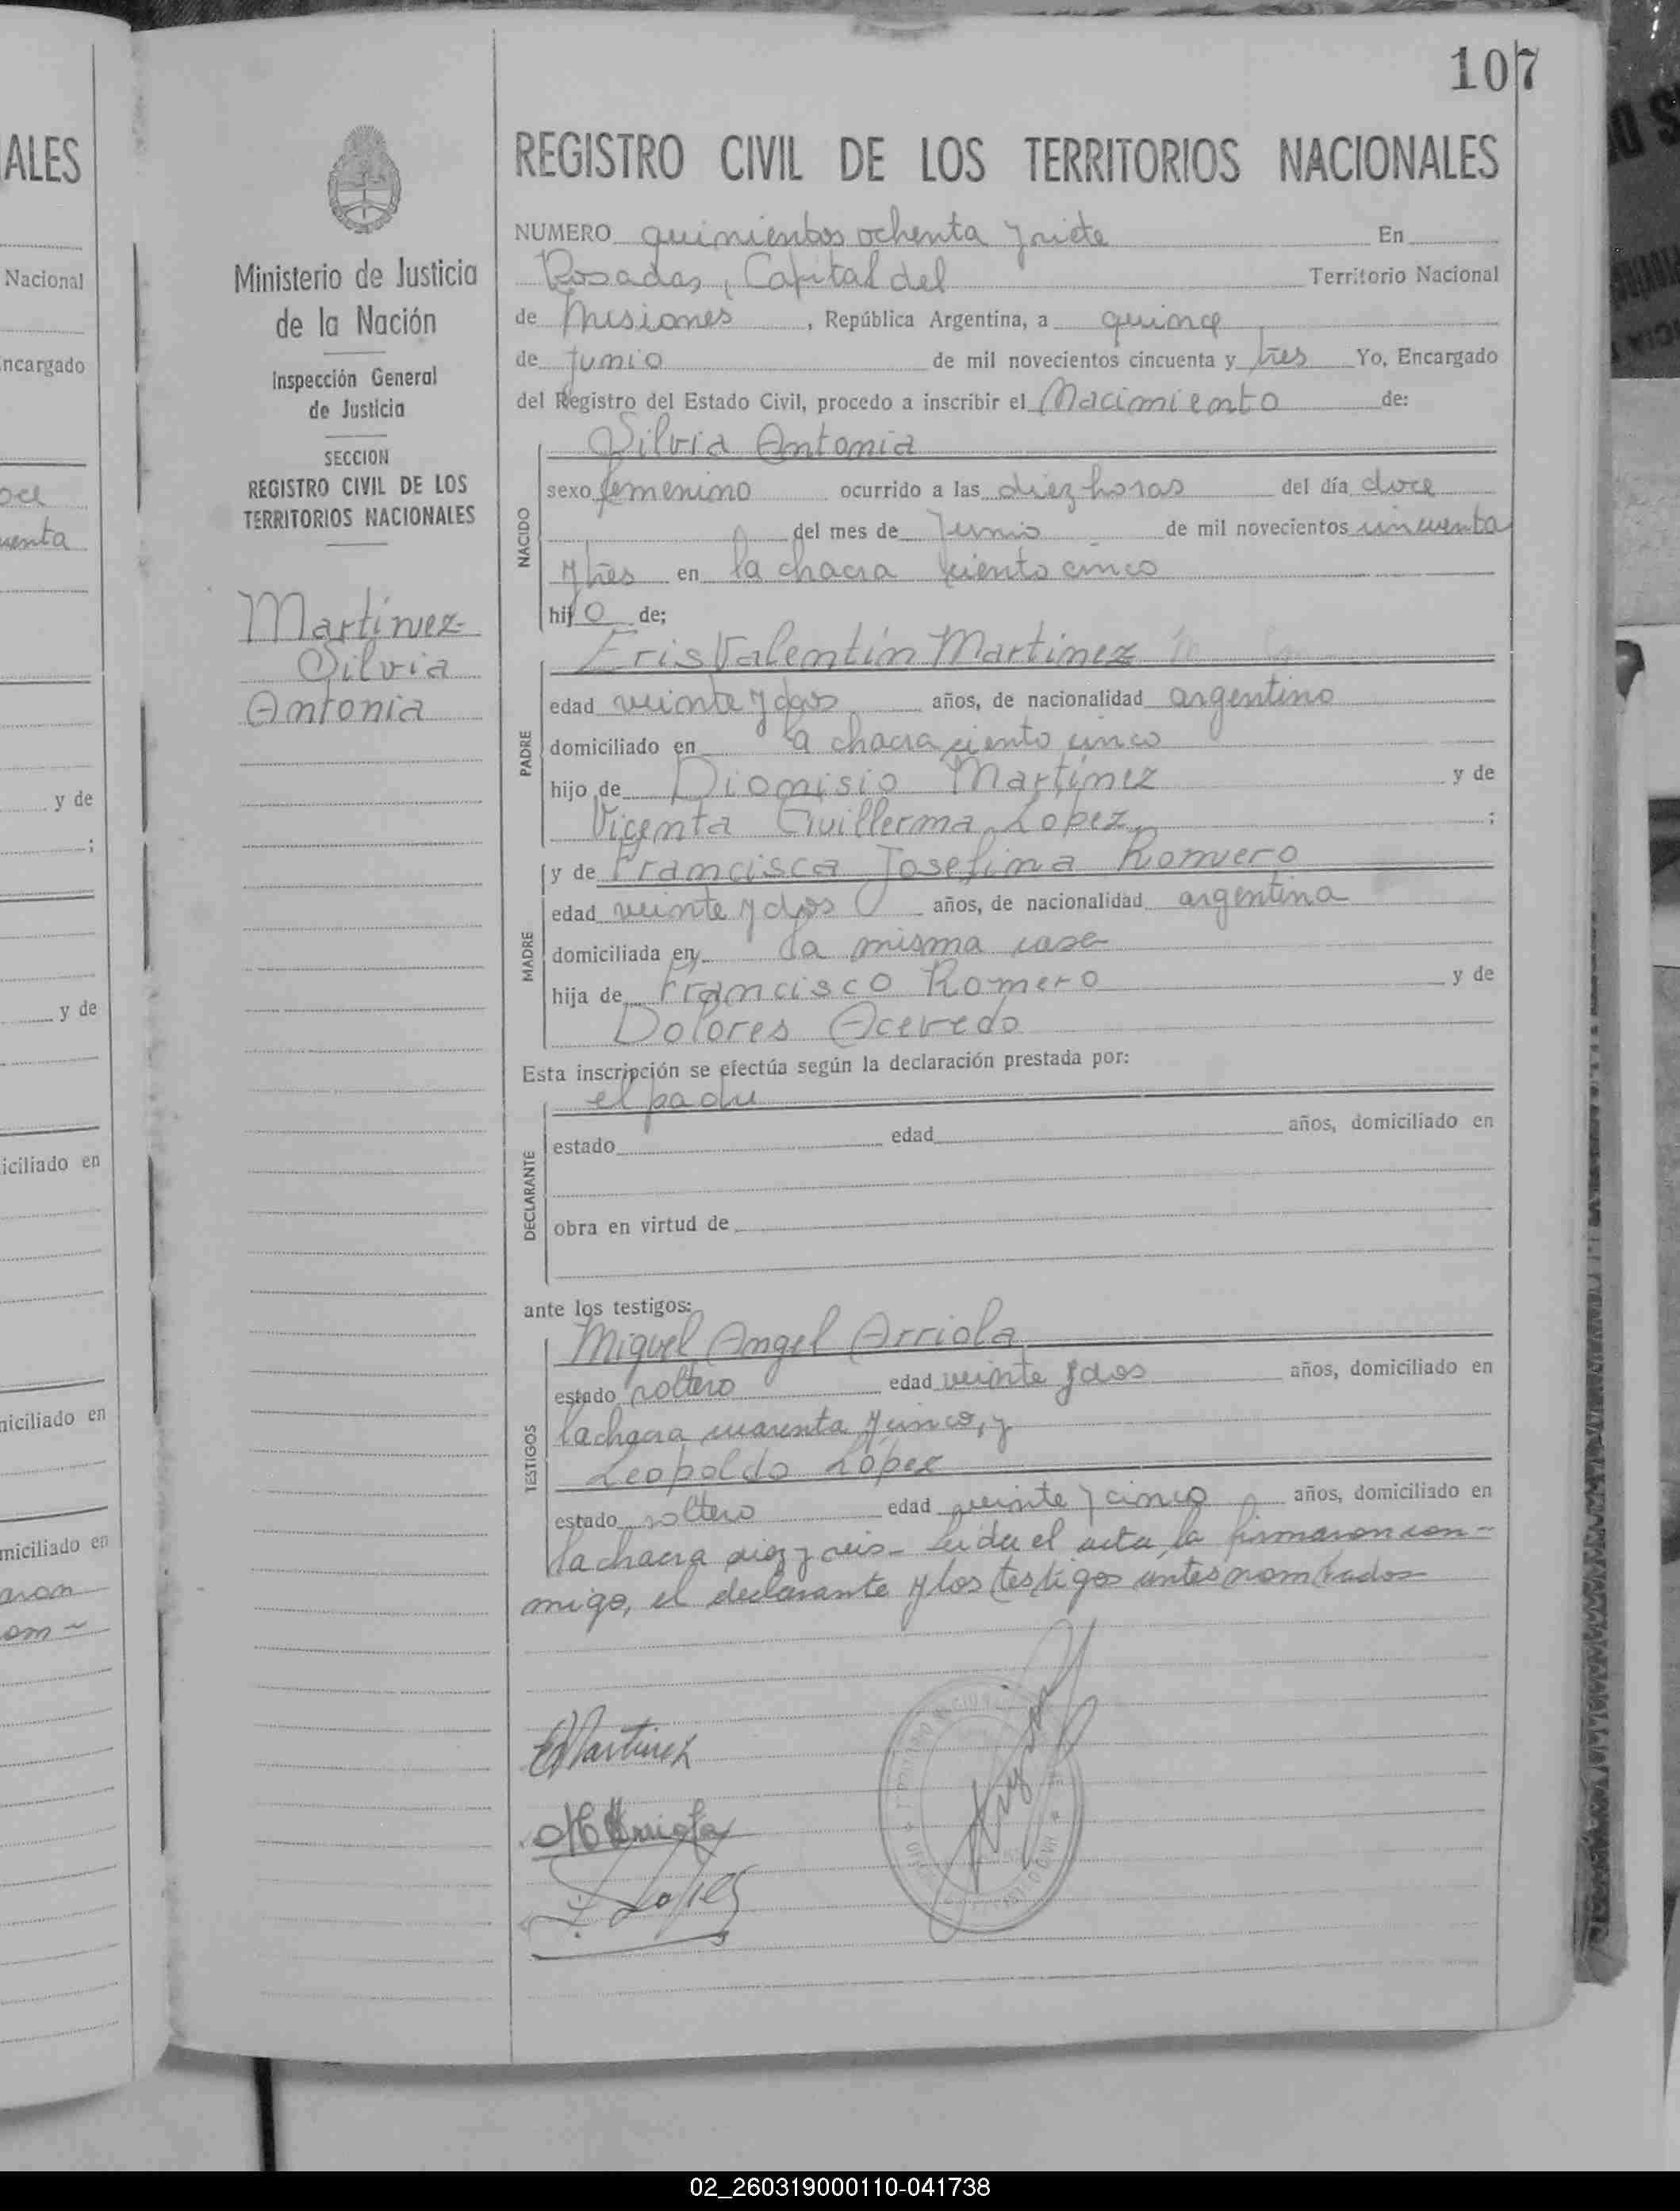 107
ALES
Nacional
Encargado
oce
uenta
y de
;
y de
iciliado en
niciliado en
miciliado en
aron
om -
Ministerio de Justicia
de la Nación
Inspección General
de Justicia
SECCION
REGISTRO CIVIL DE LOS
TERRITORIOS NACIONALES
Martinez
Silvia
Antonia
REGISTRO CIVIL DE LOS TERRITORIOS NACIONALES
NUMERO quinientos ochenta y siete En
Posadas, Capital del Territorio Nacional
de Misiones, República Argentina, a quince
de Junio de mil novecientos cincuenta y tres Yo, Encargado
del Registro del Estado Civil, procedo a inscribir el Nacimiento de:
Silvia Antonia
NACIDO
sexo femenino ocurrido a las diez horas del día doce
del mes de Junio de mil novecientos cincuenta
y tres en la chacra ciento cinco
hijo de;
Eris Valentín Martinez
PADRE
edad veinte y dos años, de nacionalidad argentino
domiciliado en la chacra ciento cinco
hijo de Dionisio Martínez y de
Vicenta Guillerma Lopez ;
y de Francisca Josefina Romero
MADRE
edad veinte y dos años, de nacionalidad argentina
domiciliada en la misma casa
hija de Francisco Romero y de
Dolores Acevedo
Esta inscripción se efectúa según la declaración prestada por:
el padre
DECLARANTE
estado edad años, domiciliado en
obra en virtud de
ante los testigos:
Miguel Angel Arriola
TESTIGOS
estado soltero edad veinte y dos años, domiciliado en
la chacra cuarenta y cinco, y
Leopoldo López
estado soltero edad veinte y cinco años, domiciliado en
la chacra diez y seis- Leida el acta, la firmaron con-
migo, el declarante y los testigos antes nombrados
EMartinez
MArriola
L. Lopez
02_260319000110-041738